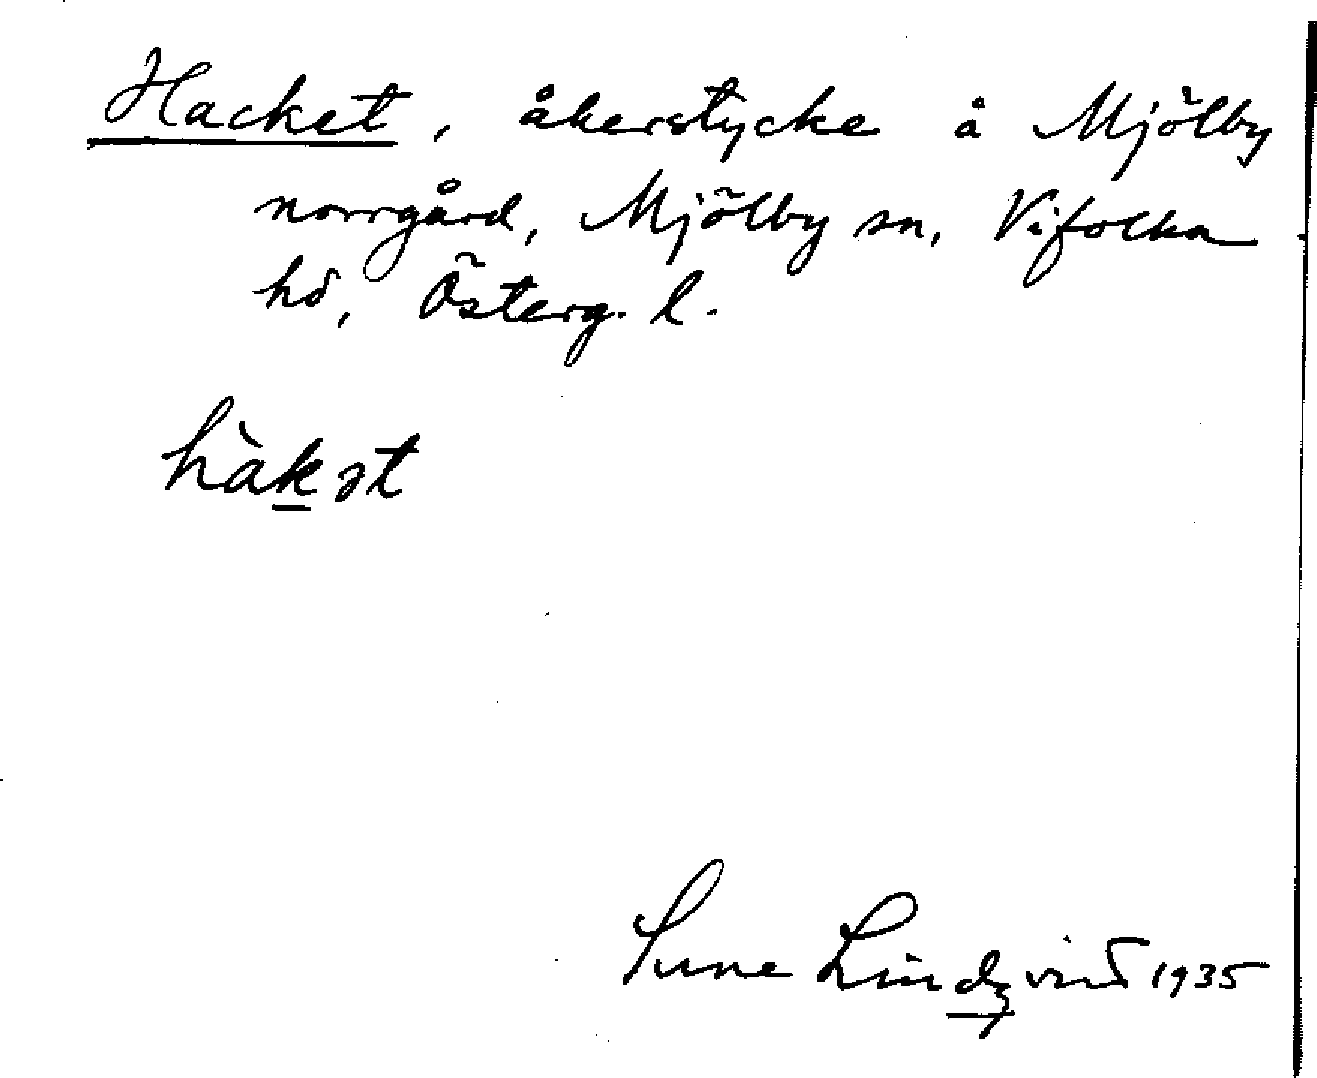 Hacket, åkerstycke å Mjölby
norrgård, Mjölby sn, Vifolka
hd, Österg. l.
hàkət
Sune Lindqvist 1935